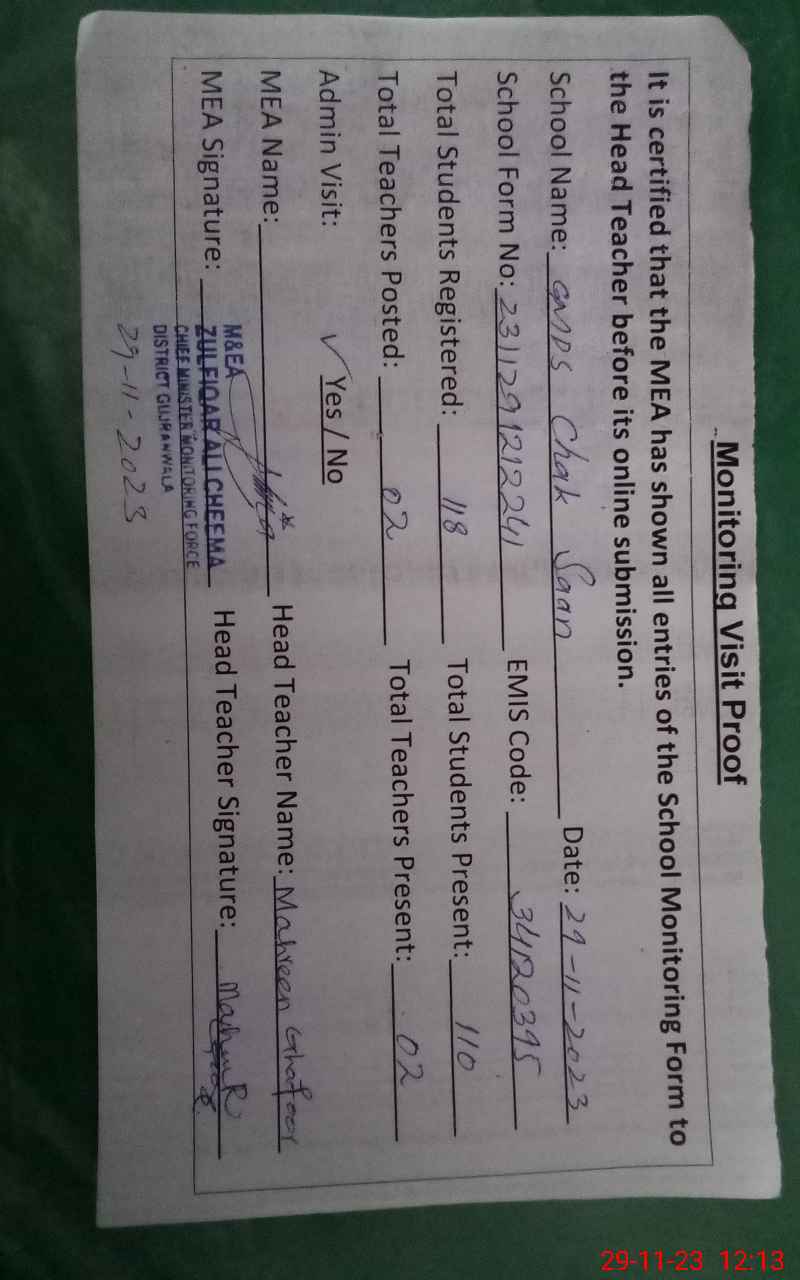 Monitoring Visit Proof
It is certified that the MEA has shown all entries of the School Monitoring Form to
the Head Teacher before its online submission.
School Name: GMPS Chak Saan Date: 29-11-2023
School Form No: 2311291212241 EMIS Code: 34120395
Total Students Registered: 118 Total Students Present: 110
Total Teachers Posted: 02 Total Teachers Present: 02
Admin Visit: ✓ Yes / No
MEA Name: Head Teacher Name: Mahreen Ghafoor
MEA Signature: Head Teacher Signature:
M&EA
ZULFIQAR ALI CHEEMA
CHIEF MINISTER MONITORING FORCE
DISTRICT GUJRANWALA
29-11-2023
29-11-23 12:13